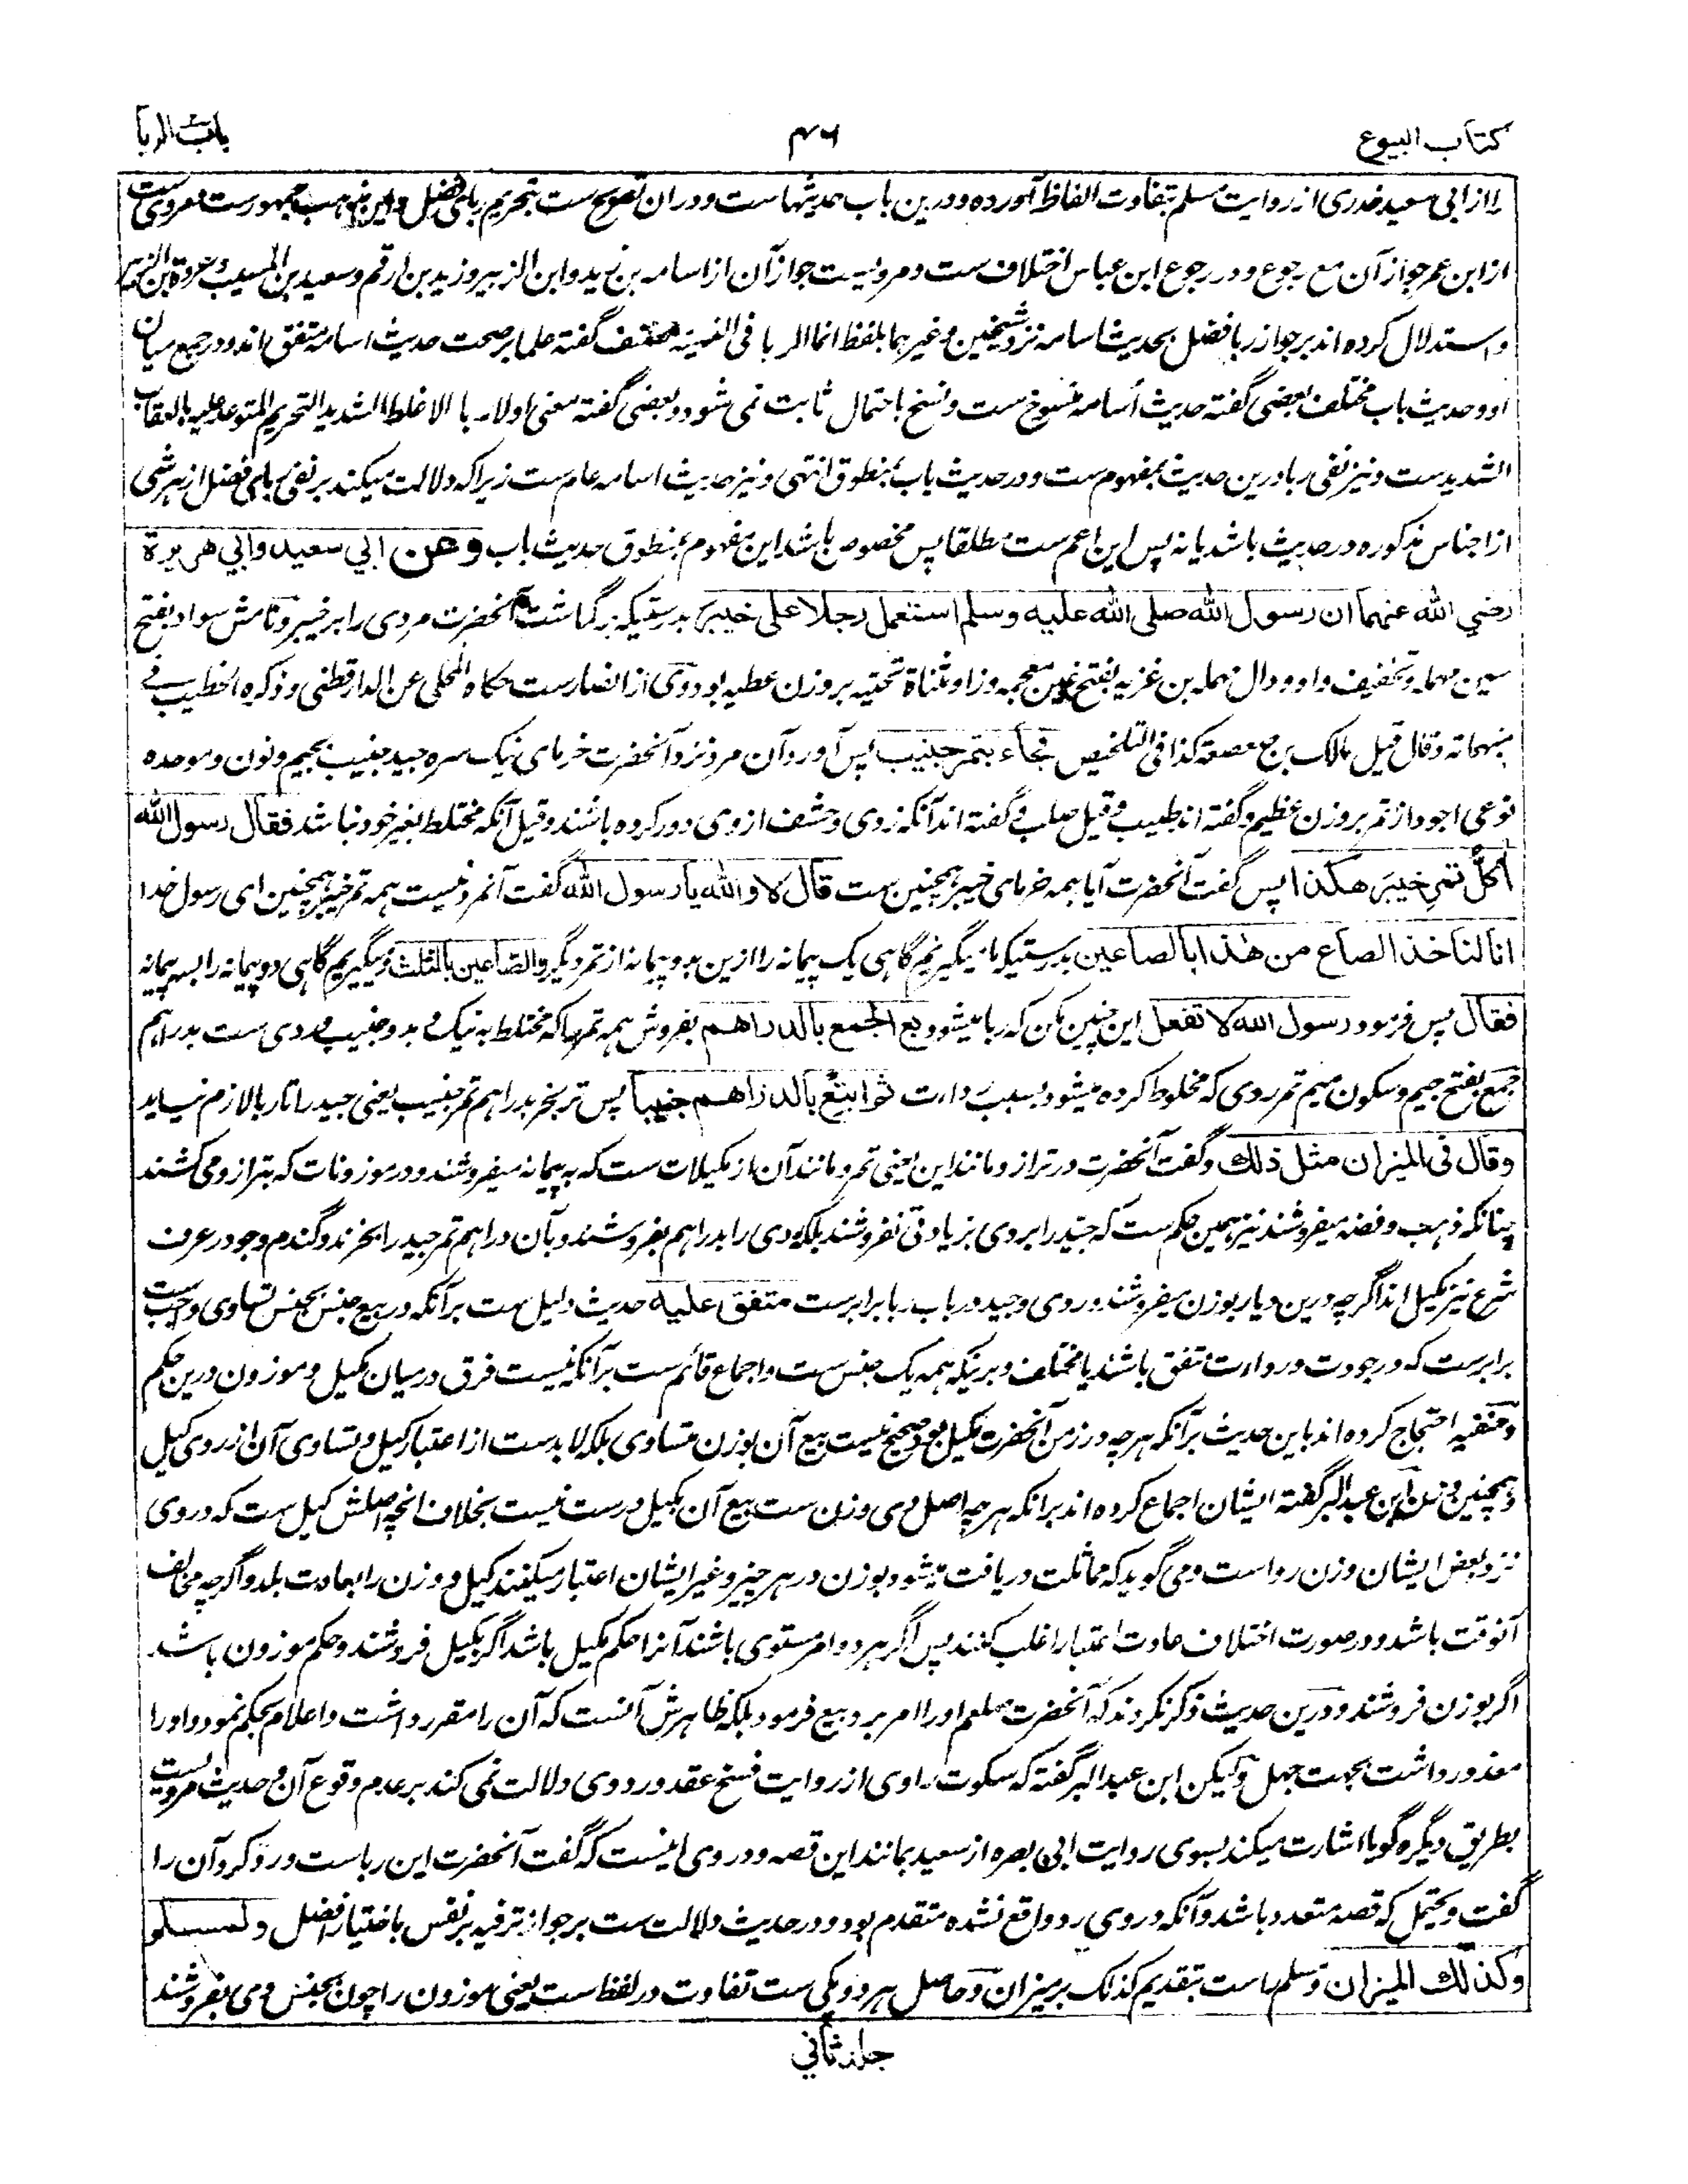 کتاب البیوع
۴۶
باب الربا
را از ابی سعید خدری از روایت مسلم بتفاوت الفاظ آورده و درین باب حدیثها ست و در ان تصریح ست بتحریم ربای فضل و این مذهب جمهورست و مرویست
از ابن عمر جواز آن مع رجوع و در رجوع ابن عباس اختلاف ست و مرویست جواز آن از اسامه بن زید و ابن الزبیر و زید بن ارقم و سعید بن المسیب و عروة بن الزبیر
و استدلال کرده اند بر جواز ربا فضل بحدیث اسامه نزد شیخین و غیرهما بلفظ انما الربا فی النسیئة مصنف گفته علما بر صحت حدیث اسامه متفق اند و در جمع میان
او و حدیث باب مختلف بعضی گفته حدیث اسامه منسوخ ست و نسخ باحتمال ثابت نمی شود و بعضی گفته معنی او لا ربا الاغلظ الشدید التحریم المتوعد علیه بالعقاب
الشدیدست و نیز نفی ربا درین حدیث بمفهوم ست و در حدیث باب بمنطوق انتهی و نیز حدیث اسامه عام ست زیرا که دلالت میکند بر نفی ربای فضل از هر شی
از اجناس مذکوره در حدیث باشد یا نه پس این اعم ست مطلقا پس مخصوص باشد این مفهوم بمنطوق حدیث باب وعن ابي سعيد وابي هريرة
رضي الله عنهما ان رسول الله صلى الله عليه وسلم استعمل رجلا على خيبر بدرستیکه برگماشت آنحضرت مردی را بر خیبر و نامش سواد بفتح
سین مهمله و تخفیف واو و دال مهمله بن غزیه بفتح غین معجمه و زا و مثناة تحتیه بر وزن عطیه بود وی از انصارست حکاه المحلی عن الدارقطنی و ذکره الخطیب فی
مبهماته و قال قیل مالک بن صعصعه کذا فی التلخیص فجاء بتمر جنيب پس آورد آن مرد نزد آنحضرت خرمای نیک سره جید جنیب بجیم و نون و موحده
نوعی اجود از تمر بر وزن عظیم و گفته اند طیب و قیل صلب و گفته اند آنکه زوی و حشف از وی دور کرده باشند و قیل آنکه مختلط بغیر خود نباشد فقال رسول الله
أكل تمر خيبر هكذا پس گفت آنحضرت آیا همه خرمای خیبر همچنین ست قال لا والله يا رسول الله گفت آنمرد نیست همه تمر خیبر همچنین ای رسول خدا
انا لناخذ الصاع من هذا بالصاعين بدرستیکه ما میگیریم گاهی یک پیمانه را ازین بدو پیمانه از تمر دیگر والصاعين بالثلث و میگیریم گاهی دو پیمانه را بسه پیمانه
فقال پس فرمود رسول الله لا تفعل این چنین مکن که ربا میشود بع الجمع بالدراهم بفروش همه تمرها که مختلط به نیک و بد و جنیب و ردی ست بدراهم
جمع بفتح جیم و سکون میم تمر ردی که مخلوط کرده میشود بسبب رداءت ثم ابتع بالدراهم جنيبا پس تر بخر بدراهم تمر جنیب یعنی جید را تا ربا لازم نیاید
وقال في الميزان مثل ذلك و گفت آنحضرت در ترازو مانند این یعنی تمر و مانند آن از مکیلات ست که به پیمانه میفروشند و در موزونات که بترازو می کشند
چنانکه ذهب و فضه میفروشند نیز همین حکم ست که جید را بردی بزیادتی نفروشند بلکه ردی را بدراهم بفروشند و بآن دراهم تمر جید را بخرند و گندم و جو در عرف
شرع نیز مکیل اند اگرچه درین دیار بوزن میفروشند و ردی و جید در باب ربا برابرست متفق عليه حدیث دلیل ست بر آنکه در بیع جنس بجنس تساوی واجب ست
برابرست که در جودت و رداءت متفق باشند یا مختلف و برینکه همه یک جنس ست و اجماع قائم ست بر آنکه نیست فرق درمیان مکیل و موزون درین حکم
و حنفیه احتجاج کرده اند باین حدیث بر آنکه هر چه در زمن آنحضرت مکیل بود صحیح نیست بیع آن بوزن متساوی بلکه لابدست از اعتبار کیل و تساوی آن از روی کیل
و همچنین وزن ابن عبد البر گفته ایشان اجماع کرده اند برانکه هر چه اصل وی وزن ست بیع آن بکیل درست نیست بخلاف انچه اصلش کیل ست که در وی
نزد بعض ایشان وزن رواست و می گوید که مماثلت دریافت میشود بوزن در هر چیز و غیر ایشان اعتبار میکنند کیل و وزن را بعادت بلد و اگرچه مخالف
آنوقت باشد و در صورت اختلاف عادت اعتبار اغلب کنند پس اگر هر دو امر مستوی باشند آنرا حکم مکیل باشد اگر بکیل فروشند و حکم موزون باشد
اگر بوزن فروشند و درین حدیث ذکر نکردند که آنحضرت صلعم او را امر برد بیع فرمود بلکه ظاهرش آنست که آن را مقرر داشت و اعلام بحکم نمود و او را
معذور داشت بجهت جهل و لیکن ابن عبد البر گفته که سکوت راوی از روایت فسخ عقد و رد وی دلالت نمی کند بر عدم وقوع آن و حدیث مرویست
بطریق دیگر و گویا اشارت میکند بسوی روایت ابی بصره از سعید بمانند این قصه و در وی اینست که گفت آنحضرت این رباست و رد کرد آن را
گفت و یحتمل که قصه متعدد باشد و آنکه در وی رد واقع نشده متقدم بود و در حدیث دلالت ست بر جواز ترفیه بر نفس باختیار افضل ولمسلم
وكذلك الميزان و مسلم راست بتقدیم کذلک بر میزان و حاصل هر دو یکی ست تفاوت در لفظ ست یعنی موزون را چون بجنس وی بفروشند
جلد ثاني